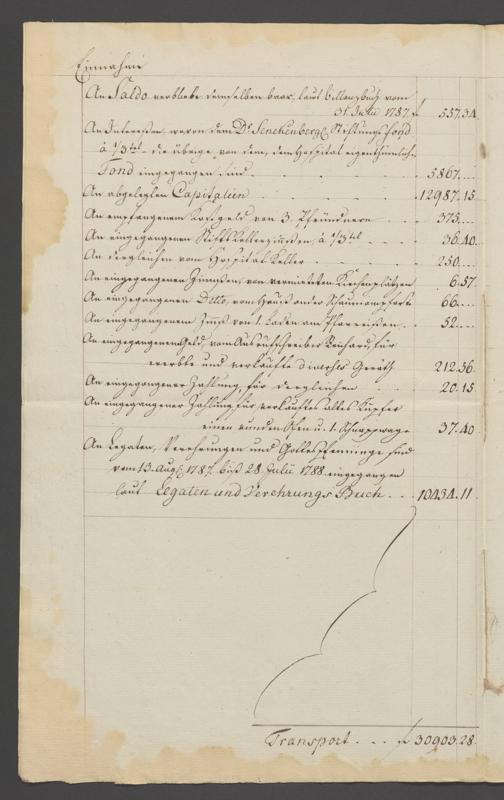 Einnahme
An Saldo verbliebe demselben baar, laut Billanzbuch vom
31. Julii 1787. f 557.34.
An Interessen, wovon dem Dr. Senckenbergl. Stiftungsfond
à 1/3tel die übrige von dem, dem Hospital eigenthümlichen
Fond eingegangen sind . . . . . 5867. ...
An abgelegten Capitalien . . . . 12987.15.
An empfangenem Kostgeld, von 3. Pfründnern . . 375. ...
An eingegangenen Stifts Kellerzinnsen, à 1/3tel . . . 36.40.
An dergleichen vom Hospital Keller . . . . 250. ...
An eingegangenen Zinnsen, von vermietheten Kirchenplätzen . 6.57.
An eingegangenen Ditto, vom Hauß an der Schaumainpforte 66. ...
An eingegangenem Zinnß von 1. Laden am Pfarreisen . . 52. ...
An eingegangenem Geld, vom Ausrufschreiber Reinhard, für
ererbte und verkaufte diverse Geräth 212.56.
An eingegangener Zahlung, für dergleichen . . . 20.15
An eingegangener Zahlung für verkauftes altes Kupfer
einen runden Ofen u. 1. Schnappwage 37.40.
An Legaten, Verehrungen und Gottespfenninge sind
vom 13. Aug. 1787. biß 28. Julii 1788. eingegangen
laut Legaten und Verehrungs Buch . . . 10434.11.
Transport . . . f 30903.28.